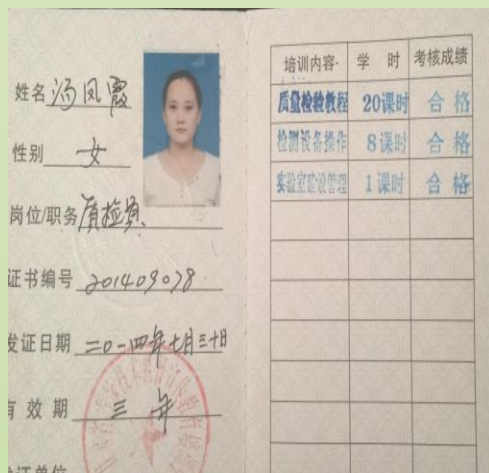 姓名 冯凤霞
性别 女
岗位/职务 质检员
证书编号 201409078
发证日期 二0一四年七月三十日
有效期 三年
发证单位
培训内容 学时 考核成绩
质量检验教程 20课时 合格
检测设备操作 8课时 合格
实验室建设管理 1课时 合格